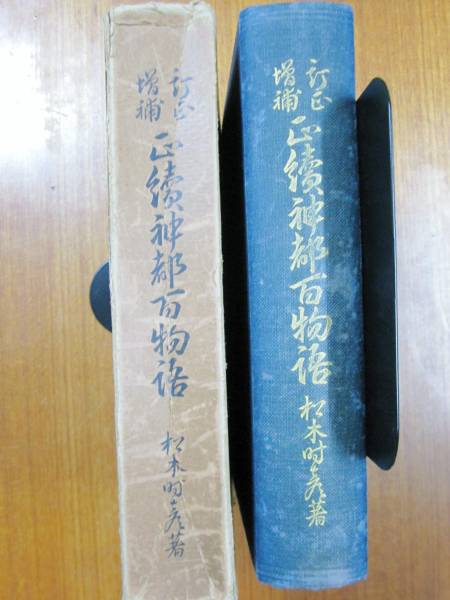 訂正
增補
正續神都百物語
松木時彦著
訂正
增補
正續神都百物語
松木時彦著